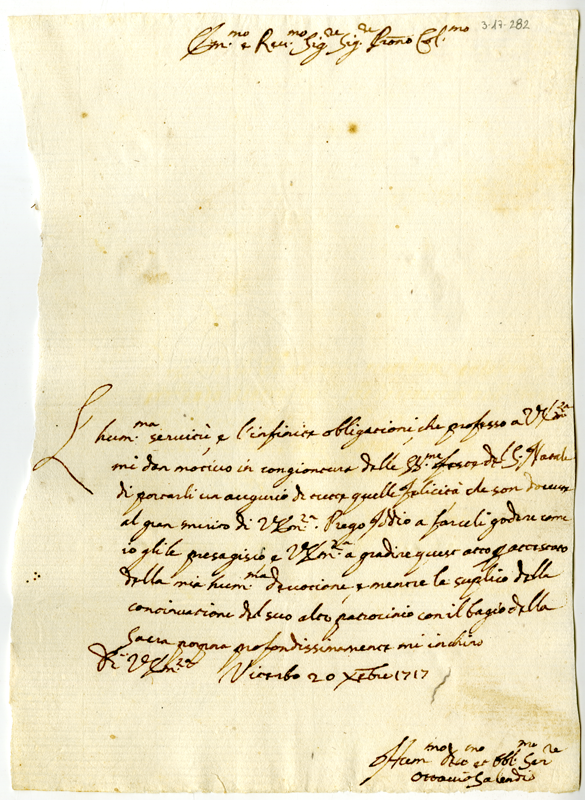 3-17-282
Em.mo e Reu.mo Sig.re Sig.re Prone Col.mo
L'hum.ma seruitù, e l'infinite obligationi, che professo a V. Em.za
mi dan motiuo in congiontura delle SS.me feste del S. Natale
di portarli un augurio di tutte quelle felicità che son douute
al gran merito di V. Em.za. Prego Iddio a farceli godere come
io gli le presagisco e V. Em.za a gradire quest' atto
della mia hum.ma deuotione, e mentre la suplico della
continuatione del suo alto patrocinio con il bagio della
Sacra porpora profondissimamente mi inchino
Di V. Em.za Viterbo 20 Xbre 1717
Hum.mo Diu.mo et Obbl.mo Ser.re
Ottauio